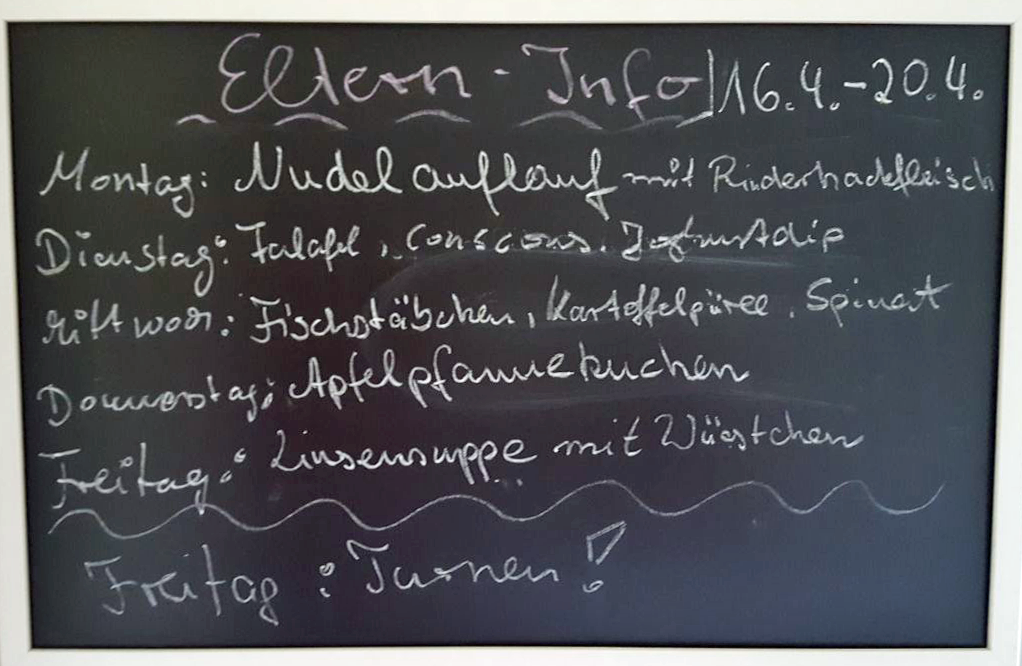 Eltern - Info 16.4.-20.4.
Montag: Nudelauflauf mit Rinderhackfleisch
Dienstag: Falafel, Couscous, Jogurtdip
Mittwoch: Fischstäbchen, Kartoffelpüree, Spinat
Donnerstag: Apfelpfannekuchen
Freitag: Linsensuppe mit Würstchen
Freitag: Turnen!